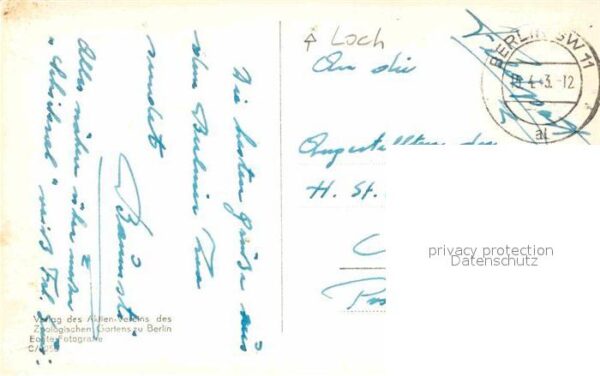 Die besten Grüße aus
dem Berliner Zoo
sendet
Alles nähere über mein
"Schicksal" weiß Frl.
Verlag des Aktien-Vereins des
Zoologischen Gartens zu Berlin
Echte Fotografie
Loch
An die
Angestellten der
H. St.
BERLIN SW 11
4.43.-12
al
privacy protection
Datenschutz